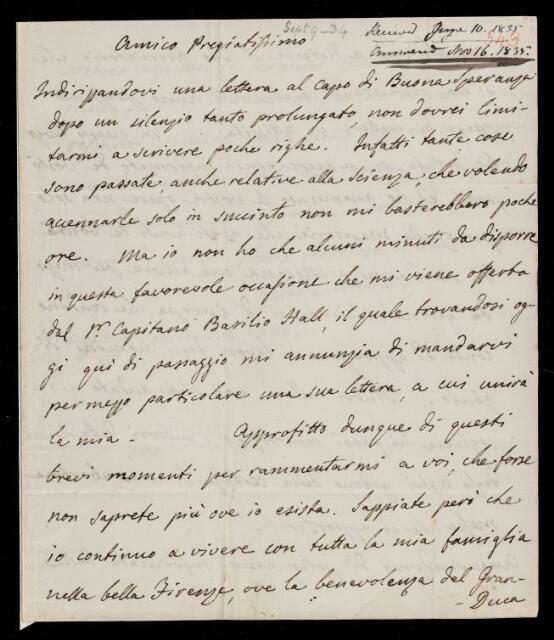 Sept 9_34
Received June 10. 1835
548
Answered Nov 16. 1835.
Amico Pregiatissimo
Indirizzandovi una lettera al capo di Buona Speranza
dopo un silenzio tanto prolungato, non dovrei limi-
tarmi a scrivere poche righe. Infatti tante cose
sono passate, anche relative alla scienza, che volendo
accennarle solo in succinto non mi basterebbero poche
ore. Ma io non ho che alcuni minuti da disporre
in questa favorevole occasione che mi viene offerta
dal Sr. Capitano Basilio Hall, il quale trovandosi og-
gi qui di passaggio mi annunzia di mandarvi
per mezzo particolare una sua lettera, a cui unirà
la mia - Approfitto dunque di questi
brevi momenti per rammentarmi a voi, che forse
non saprete più ove io esista. Sappiate però che
io continuo a vivere con tutta la mia famiglia
nella bella Firenze, ove la benevolenza del Gran-
- Duca